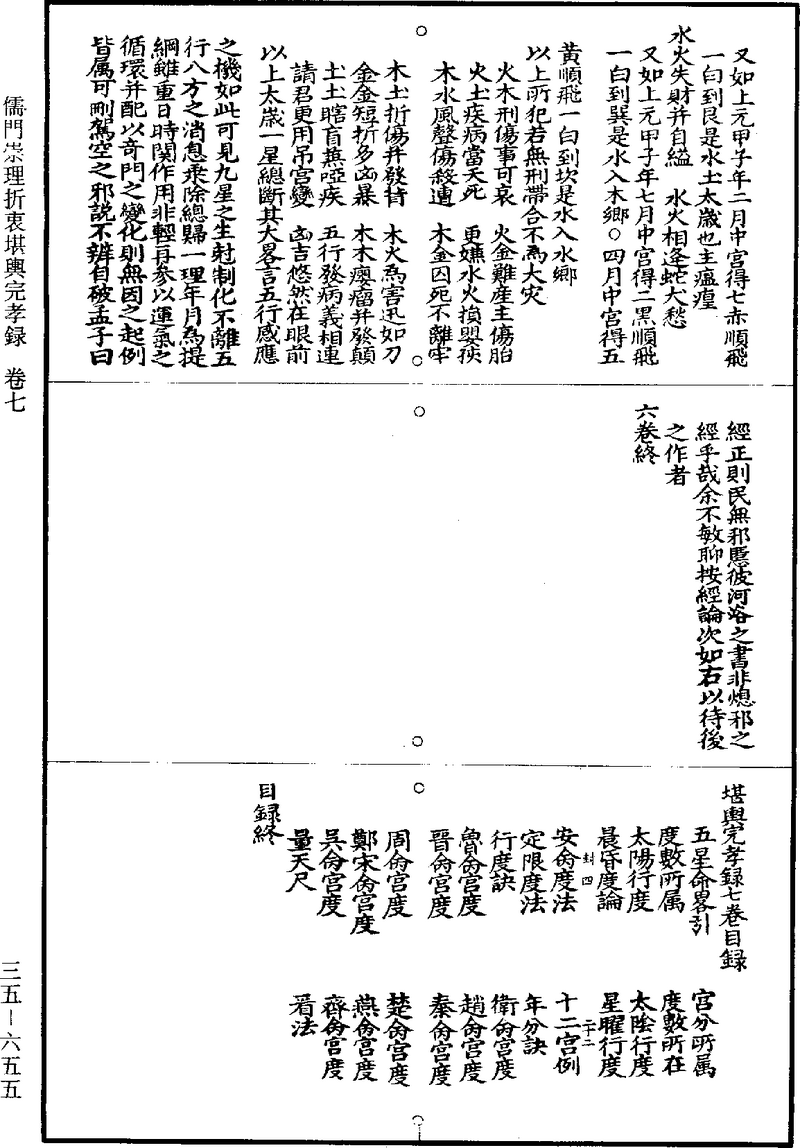 又如上元甲子年二月中宮得七赤順飛
一白到艮是水土太歲也主瘟㾮
水火失財并自縊　水火相逢蛇大愁
又如上元甲子年七月中宮得二黑順飛
一白到巽是水入木鄉○四月中宮得五
黃順飛一白到坎是水入水鄉
以上所犯若無刑帶合不為大灾
火木刑傷事可哀　火金難産主傷胎
火土疾病當夭死　更嫌水火損嬰孩
木水風聲傷殺遭　木金囚死不離牢
木土折傷并發背　木火為害迅如刀
金金短折多凶暴　木木瘿瘤并發顛
土土瞎盲蕪啞疾　五行發病義相連
請君更用吊宮變　凶吉悠然在眼前
以上太歲一星總斷其大畧言五行感應
之機如此可見九星之生尅制化不離五
行八方之消息乘除總歸一理年月為提
綱雖重日時関作用非輕再参以運氣之
循環并配以奇門之變化則無因之起例
皆属可刪駕空之邪說不辨自破孟子曰
經正則民無邪慝彼河洛之書非熄邪之
經乎哉余不敏聊按經論次如右以待後
之作者
六卷終
堪輿完孝録七卷目録
五星命畧引　宮分所属
度數所属　度數所在
太陽行度　太陰行度
晨昏度論　星曜行度
安命度法　十二宮例
定限度法　年分訣
行度訣　衛命宮度
魯命宮度　趙命宮度
晉命宮度　秦命宮度
周命宮度　楚命宮度
鄭宋命宮度　燕命宮度
吳命宮度　齊命宮度
量天尺　看法
目録終
儒門崇理折衷堪輿完孝録　卷七
三五－六五五